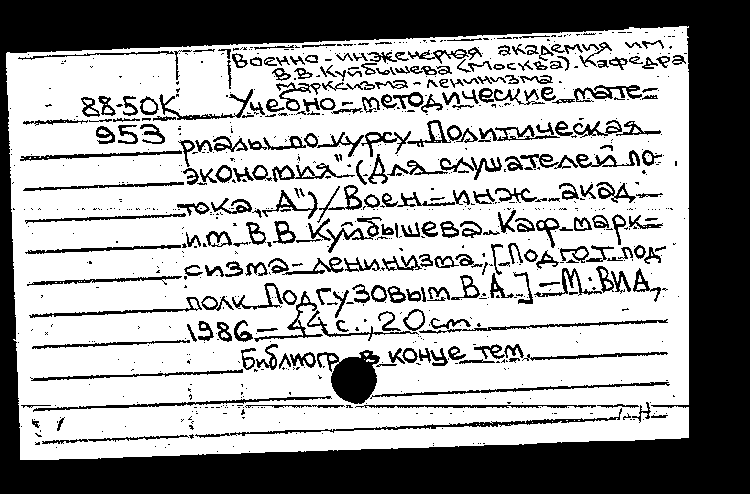 Военно-инженерная академия им.
В.В.Куйбышева (Москва). Кафедра
марксизма-ленинизма.
88-50К Учебно-методические мате-
953 риалы по курсу „Политическая
экономия" (Для слушателей по-
тока „А")/Воен.-инж. акад.
им. В.В Куйбышева. Каф. марк-
сизма-ленинизма; [Подгот. под
полк Подгузовым В.А.]—М.: ВИА,
1986.— 44 с.; 20 см.
Библиогр. в конце тем.